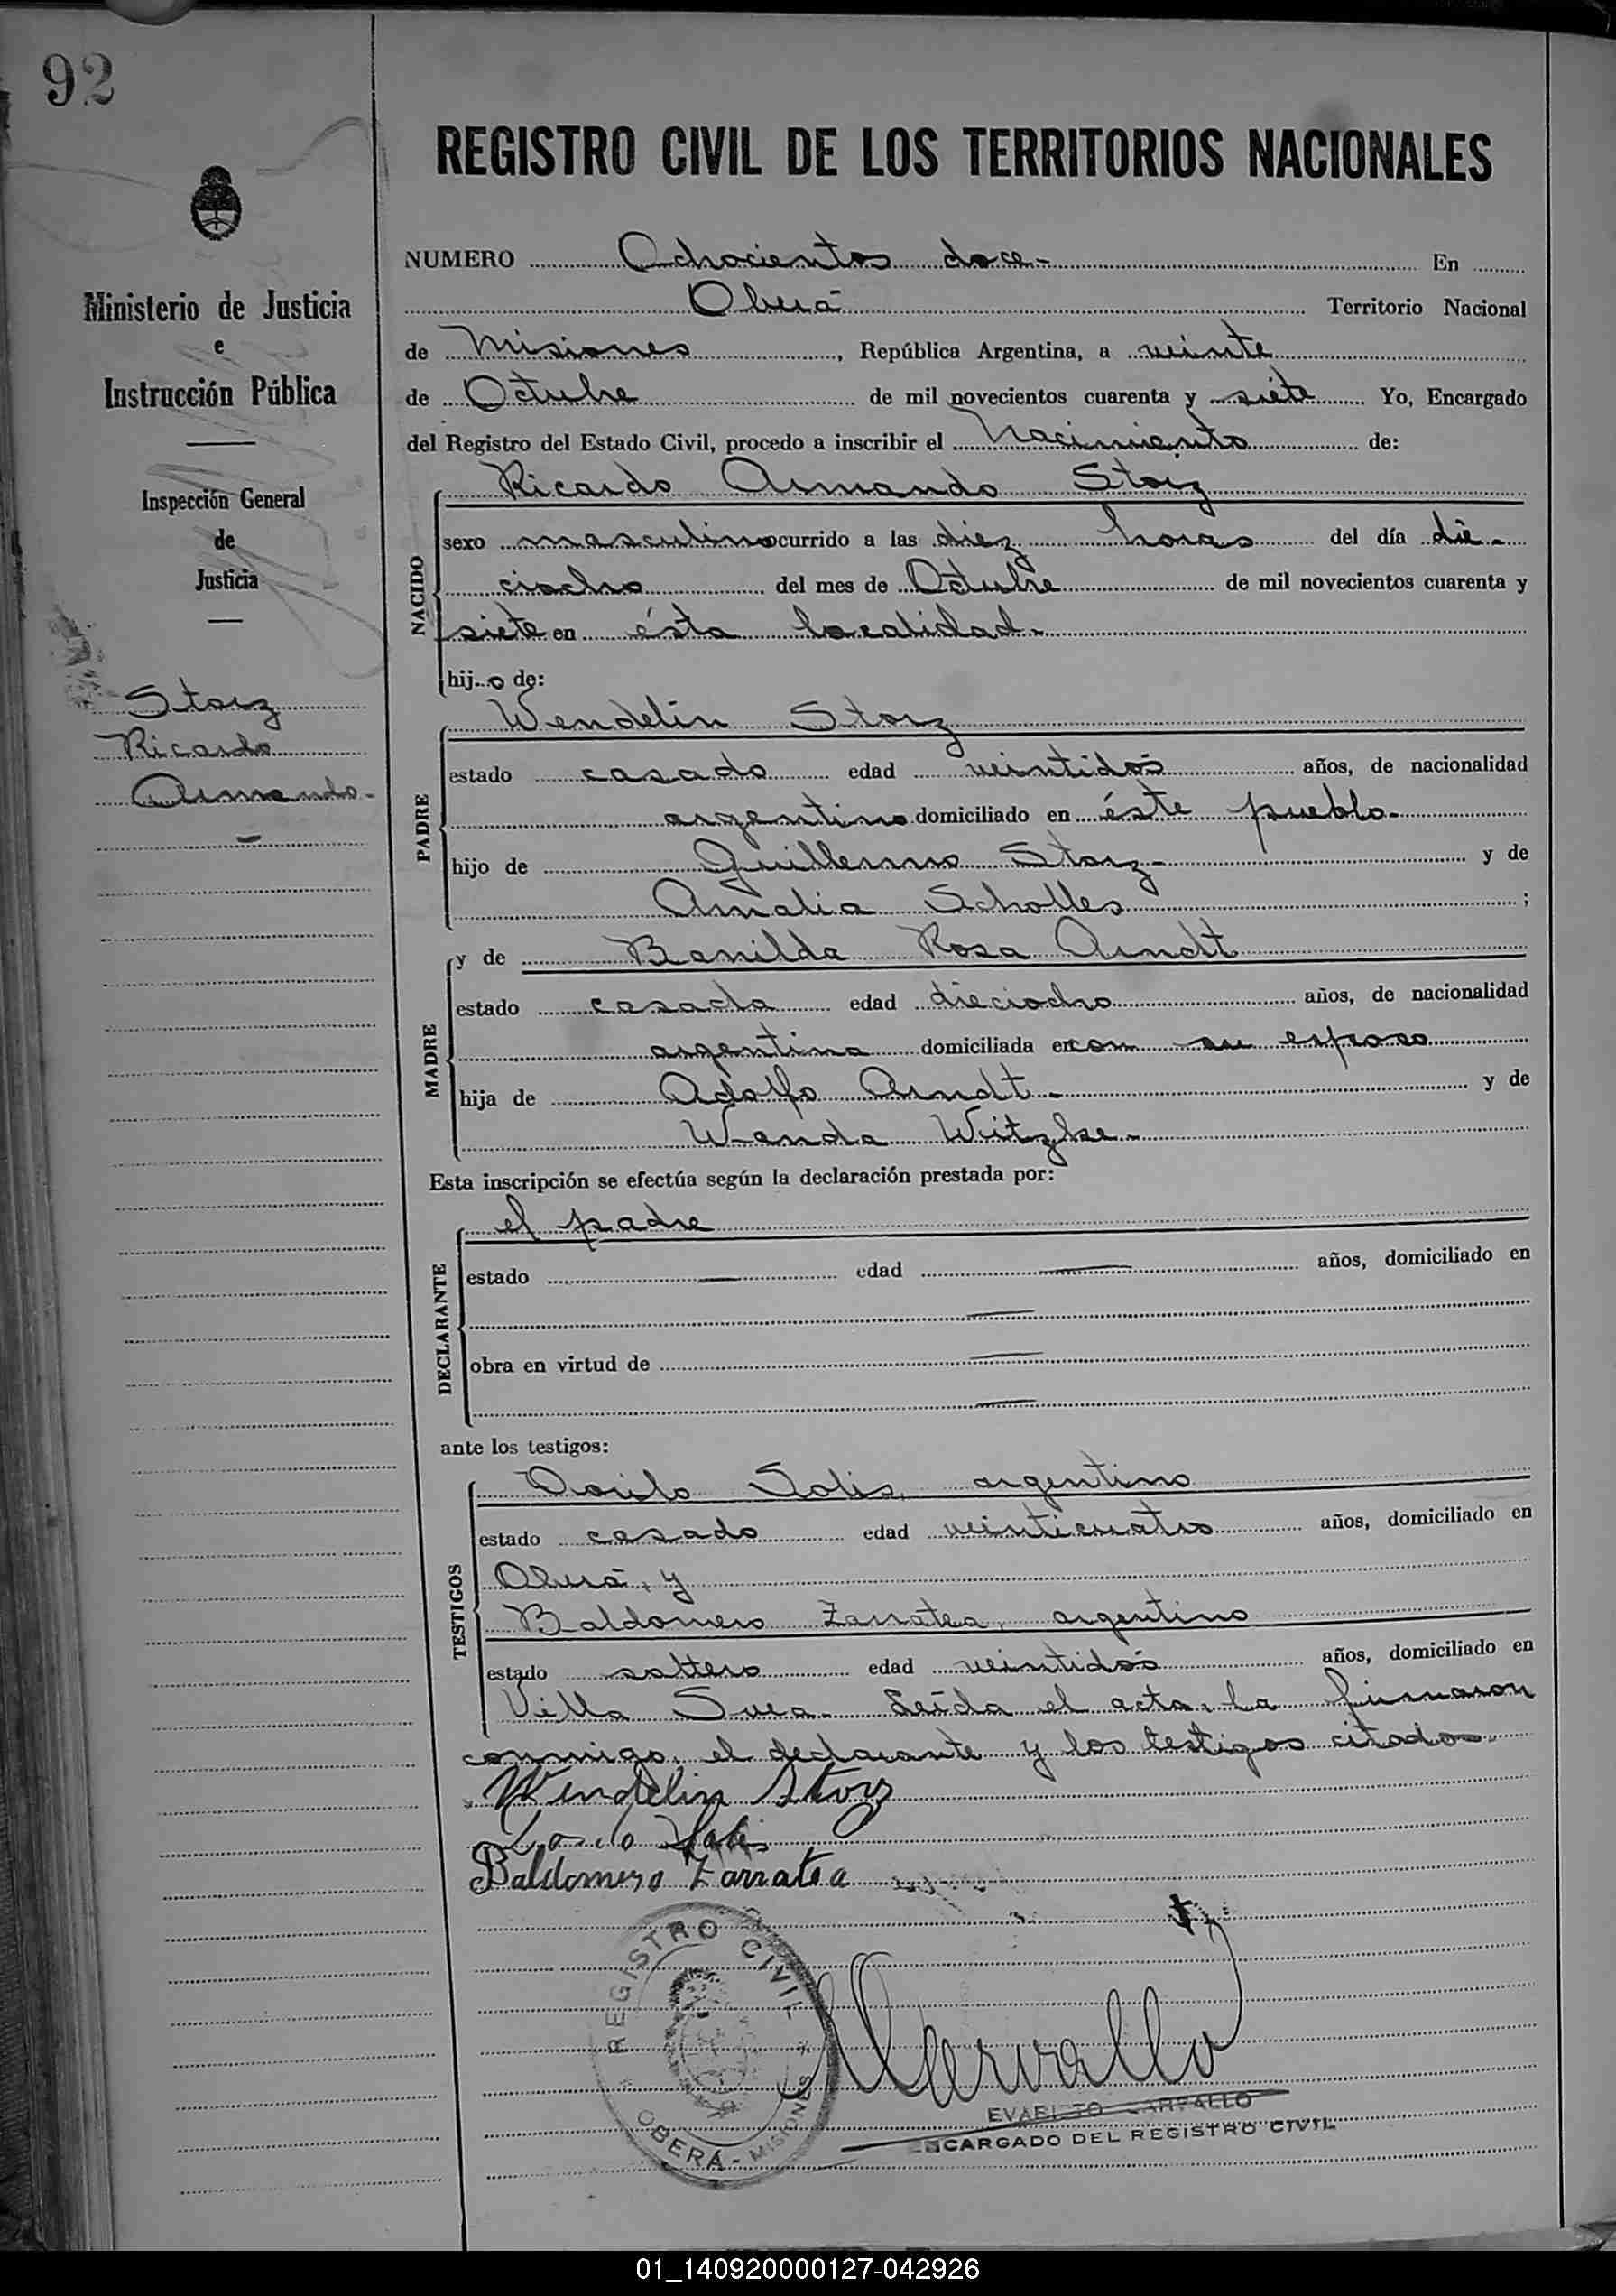 92
REGISTRO CIVIL DE LOS TERRITORIOS NACIONALES
Ministerio de Justicia
e
Instrucción Pública
Inspección General
de
Justicia
Storz
Ricardo
Armando.-
NUMERO Ochocientos doce.- En
Oberá Territorio Nacional
de Misiones, República Argentina, a veinte
de Octubre de mil novecientos cuarenta y siete Yo, Encargado
del Registro del Estado Civil, procedo a inscribir el Nacimiento de:
Ricardo Armando Storz
NACIDO
sexo masculino ocurrido a las diez horas del día die-
ciocho del mes de Octubre de mil novecientos cuarenta y
siete en ésta localidad.-
hijo de:
Wendelin Storz
PADRE
estado casado edad veintidós años, de nacionalidad
argentino domiciliado en éste pueblo.-
hijo de Guillermo Storz- y de
Amalia Scholles ;
MADRE
y de Banilda Rosa Arndt
estado casada edad dieciocho años, de nacionalidad
argentina domiciliada en con su esposo
hija de Adolfo Arndt.- y de
Wanda Witzke.-
Esta inscripción se efectúa según la declaración prestada por:
el padre
DECLARANTE
estado — edad — años, domiciliado en
—
obra en virtud de —
—
ante los testigos:
Solis, argentino
TESTIGOS
estado casado edad veinticuatro años, domiciliado en
Oberá, y
Baldomero Zarratea, argentino
estado soltero edad veintidós años, domiciliado en
Villa Svea.- Leída el acta, la firmaron
conmigo, el declarante y los testigos citados.
Wendelin Storz
Solis
Baldomero Zarratea
REGISTRO CIVIL
OBERÁ - MISIONES
EVARISTO CARVALLO
ENCARGADO DEL REGISTRO CIVIL
01_140920000127-042926